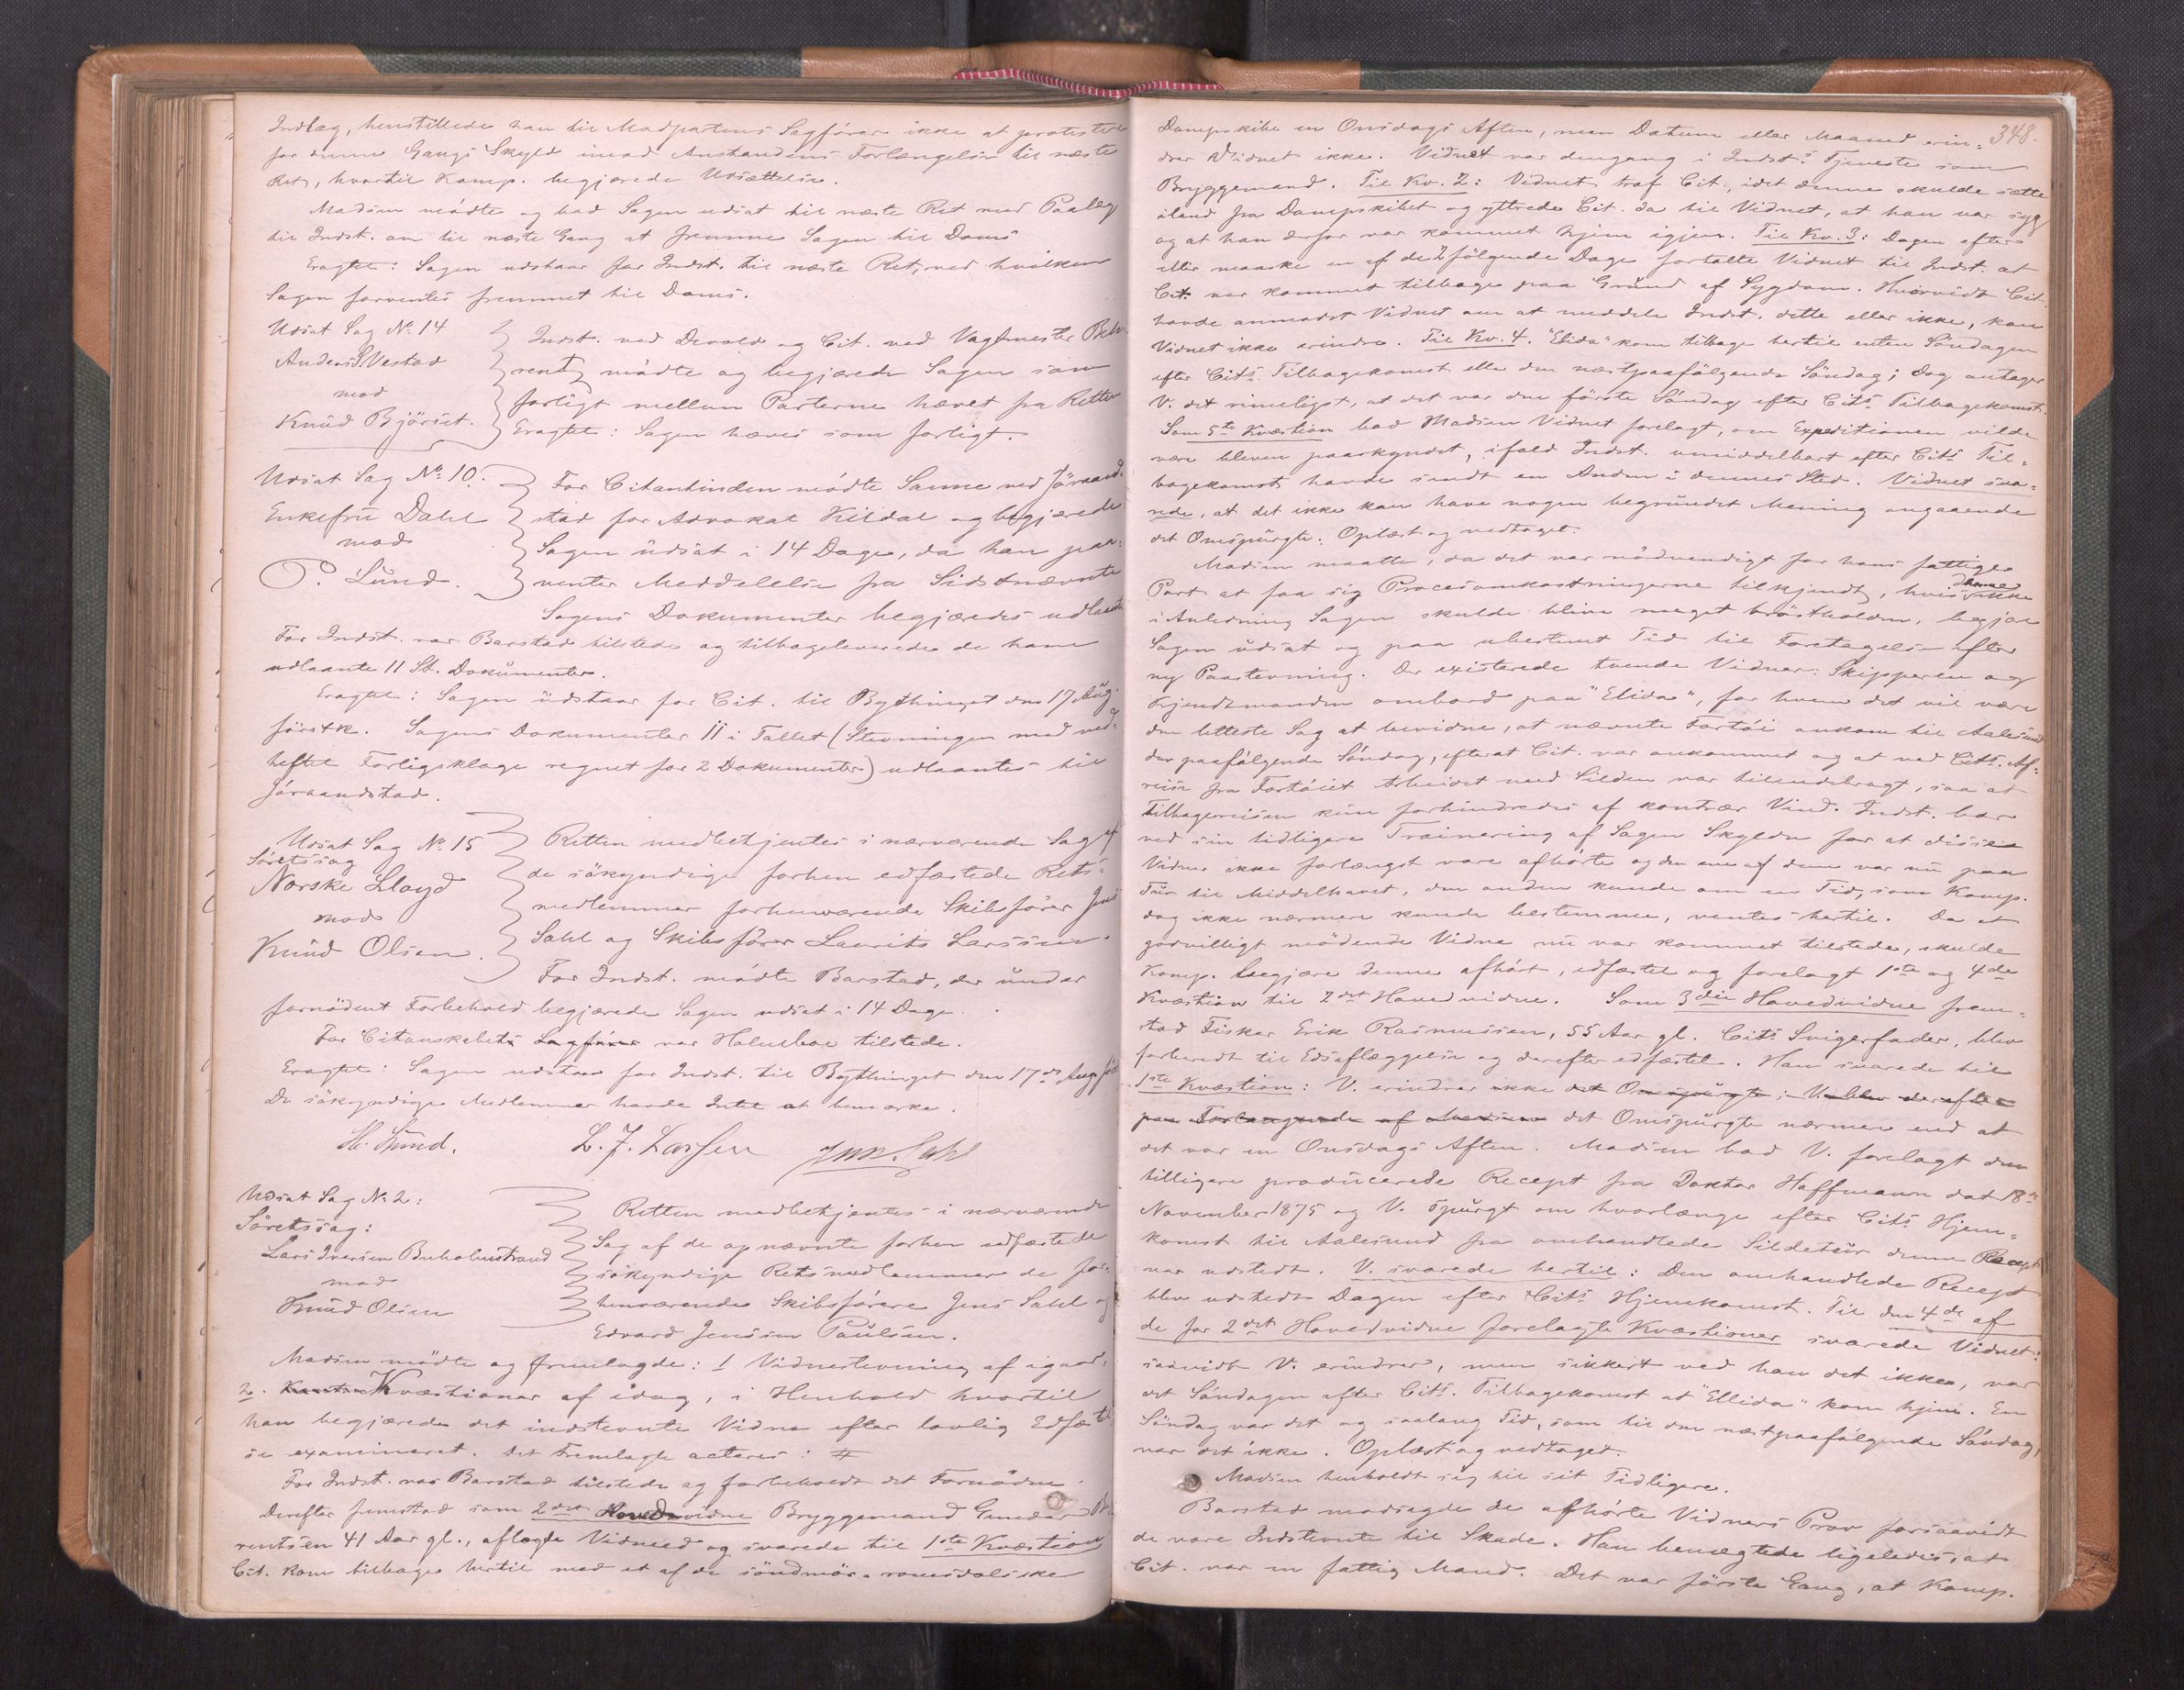 Indlæg, henstillede han til Modpartens Sagfører ikke at protestere
for denne Gangs Skyld imod Anstandens Forlængelse til næste
Ret, hvortil Komp. begjærede Udsættelse.
Madsen mödte og bad Sagen udsat til næste Ret med Paalæg
til Indst. om til næste Gang at fremme Sagen til Doms
Eragtet: Sagen udstaar for Indst. til næste Ret, ved hvilken
Sagen forventes fremmet til Doms.
Udsat Sag No 14
Anders S. Vestad
mod
Knud Bjørset.
Indst. ved Devold og Cit. ved Vagtmester
mödte og begjærede Sagen som
forligt mellem Parterne hævet fra Retten
Eragtet: Sagen hæves som forligt.
Udsat Sag No 10.
Enkefru Dahl
mod
P. Lund.
For Citantinden mödte Sanne ved Jöraand-
stad for Advokat Kildal og begjærede
Sagen udsat i 14 Dage, da han paa-
venter Meddelelse fra Sidstnævnte
Sagens Dokumenter begjæredes udlaante
For Indst. var Barstad tilstede og tilbageleverede de ham
udlaante 11 St. Dokumenter.
Eragtet: Sagen udstaar for Cit. til Bythinget den 17 Aug.
förstk. Sagens Dokumenter 11 i Tallet (Stevningen med ved-
heftet Forligsklage regnet for 2 Dokumenter) udlaantes til
Jöraandstad.
Udsat Sag No 15
Söretssag
Norske Lloyd
mod
Knud Olsen.
Retten medbetjentes i nærværende Sag af
de sökyndige forhen edfæstede Rets-
medlemmer forhenværende Skibsförer Jens
Dahl og Skibsförer Laurits Larssen.
For Indst. mödte Barstad, der under
fornödent Forbehold begjærede Sagen udsat i 14 Dage.
For Citantskabets Sagförer var Holmboe tilstede.
Eragtet: Sagen udstaar for Indst. til Bythinget den 17de Aug först
De sökyndige Medlemmer havde Intet at bemærke.
L. J. Larssen
Udsat Sag No 2:
Söretssag:
Lars Iversen Buholmstrand
mod
Knud Olsen
Retten medbetjentes i nærværende
Sag af de opnævnte forhen edfæstede
sökyndige Retsmedlemmer de for-
henværende Skibsförere Jens Dahl og
Edvard Jenssen Paulsen.
Madsen mödte og fremlagde: 1 Vidnestevning af igaar,
2. Kvæstioner af idag, i Henhold hvortil
han begjærede det indstevnte Vidne efter lovlig Edfæstel
se examineret. Det Fremlagte acteres: #
For Indst. var Barstad tilstede og forbeholdt det Fornødne.
Derefter fremstod som 2det Hovedvidne Bryggemand Gunder
rentsen 41 Aar gl., aflagde Vidneed og svarede til 1ste Kvæstion
Cit. kom tilbage hertil med et af de söndmör-romsdalske
348.
Dampskibe en Onsdags Aften, men Datum eller Maaned erin-
drer Vidnet ikke. Vidnet var dengang i Indsts Tjeneste som
Bryggemand. Til Kv. 2: Vidnet traf Cit., idet denne skulde sætte
iland fra Dampskibet og yttrede Cit. da til Vidnet, at han var syg
og at han derfor var kommet hjem igjen. Til Kv. 3: Dagen efter
eller maaske en af de 2 fölgende Dage fortalte Vidnet til Indst. at
Cit. var kommet tilbage paa Grund af Sygdom. Hvorvidt Cit.
havde anmodet Vidnet om at meddele Indst. dette eller ikke, kan
Vidnet ikke erindre. Til Kv. 4. "Elida" kom tilbage hertil enten Söndagen
efter Cits. Tilbagekomst eller den næstpaafölgende Söndag; dog antager
V. det rimeligst, at det var den förste Söndag efter Cits Tilbagekomst.
Som 5te Kvæstion bad Madsen Vidnet forelagt, om Expeditionen vilde
være bleven paaskyndet, ifald Indst. umiddelbart efter Cits Til-
bagekomst havde sendt en Anden i dennes Sted. Vidnet sva-
rede, at det ikke kan have nogen begrundet Mening angaaende
det Omspurgte. Oplæst og vedtaget.
Madsen maatte, da det var nödvendigt for hans fattige
Part at faa sig Procesomkostningerne tilkjendt, hvis denne ikke
i Anledning Sagen skulde blive meget brøstholden, begjære
Sagen udsat og paa ubestemt Tid til Foretagelse efter
ny Paastevning. Der existerede tvende Vidner: Skipperen og
Kjendtmanden ombord paa "Elida", for hvem det vil være
den letteste Sag at bevidne, at nævnte Fartöi ankom til Aalesund
den paafölgende Söndag, efterat Cit. var ankommet og at ved Cits. Af-
reise fra Fartöiet Arbeidet med Silden var tilendebragt, saa at
Tilbagereisen kun forhindredes af kontrær Vind. Indst. bar
ved sin tidligere Trainering af Sagen Skylden for at disse
Vidner ikke forlængst vare afhörte og den ene af dem var nu paa
Tur til Middelhavet, den anden kunde om en Tid, som Komp.
dog ikke nærmere kunde bestemme, ventes hertil. Da et
godvilligt mödende Vidne nu var kommet tilstede, skulde
Komp. begjære denne afhört, edfæstet og forelagt 1ste og 4de
Kvæstion til 2det Hovedvidne. Som 3die Hovedvidne frem-
stod Fisker Erik Rasmussen, 55 Aar gl. Cits Svigerfader, blev
forberedt til Edsaflæggelse og derefter edfæstet. Han svarede til
1ste Kvæstion: V. erindrer ikke det Omspurgte; V. blev derefter
paa Forlangende af Madsen det Omspurgte nærmere end at
det var en Onsdags Aften. Madsen bad V. forelagt den
tilligere producerede Recept fra Doktor Hoffmann dat 18de
November 1875 og V. spurgt om hvorlænge efter Cits Hjem-
komst til Aalesund fra omhandlede Sildetur denne Recept
var udstedt. V. svarede hertil: Den omhandlede Recept
blev udstedt Dagen efter Cits Hjemkomst. Til den 4de af
de for 2det Hovedvidne forelagte Kvæstioner svarede Vidnet:
saavidt V. erindrer, men sikkert ved han det ikke, var
det Söndagen efter Cits. Tilbagekomst at "Ellida" kom hjem. En
Söndag var det og saalang Tid, som til den næstpaafölgende Söndag,
var det ikke. Oplæst og vedtaget.
Madsen henholdt sig til sit Tidligere.
Barstad modsagde de afhörte Vidners Prov forsaavidt
de vare Indstevnte til Skade. Han benægtede ligeledes, at
Cit. var en fattig Mand. Det var förste Gang, at Komp.